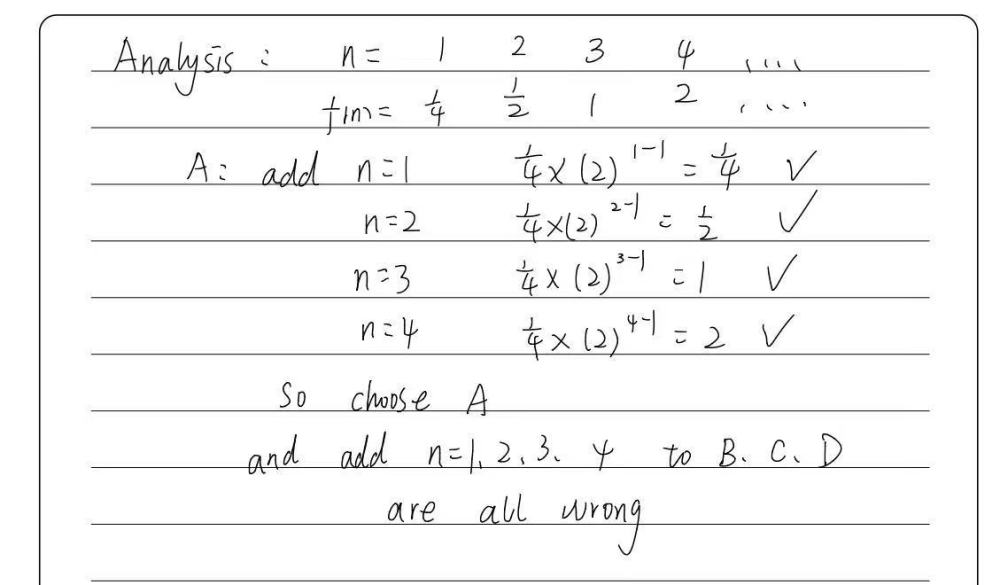 Analysis : n = 1 2 3 4 ....
f(n) = 1/4 1/2 1 2 ....
A: add n=1 1/4 × (2)^1-1 = 1/4 ✓
n=2 1/4 × (2)^2-1 = 1/2 ✓
n=3 1/4 × (2)^3-1 = 1 ✓
n=4 1/4 × (2)^4-1 = 2 ✓
So choose A
and add n=1, 2, 3、 4 to B、 C、 D
are all wrong